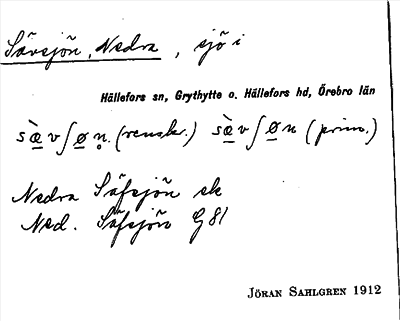 Sävsjön, Nedra, sjö i
Hällefors sn, Grythytte o. Hällefors hd, Örebro län
sæ̀vʃøn̥. (rensk.) sæ̀vʃøn (prim.)
Nedra Säfsjön ek
Ned. Säfsjön G 81
JÖRAN SAHLGREN 1912